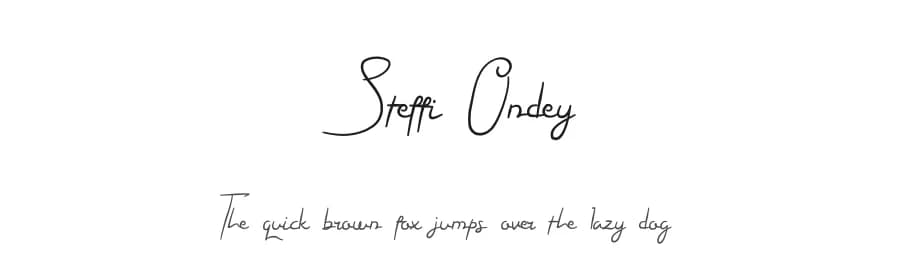 Steffi Ondey
The quick brown fox jumps over the lazy dog